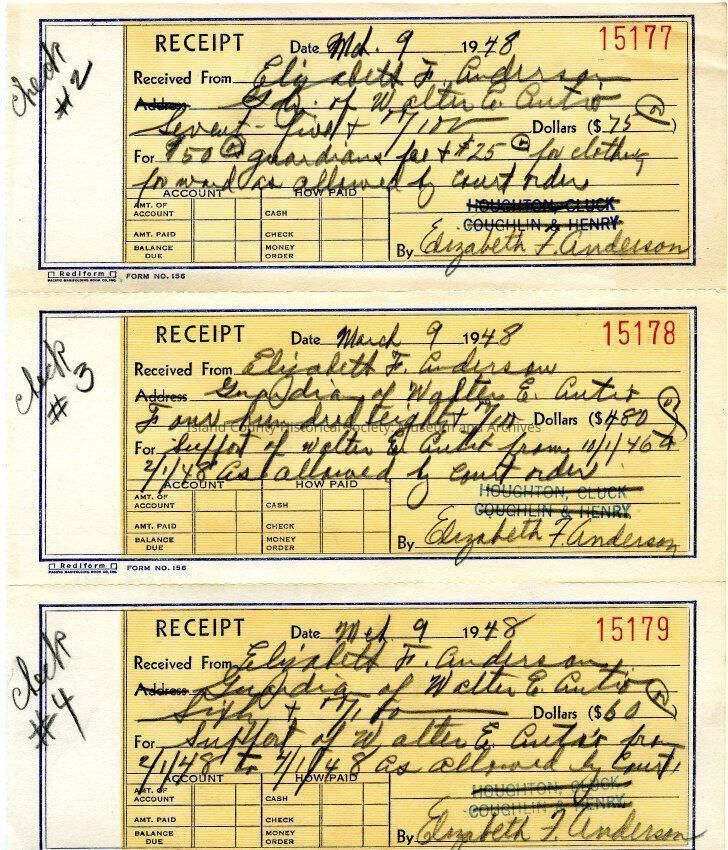 check
#2
RECEIPT
Date Mch. 9 1948
15177
Received From Elizabeth F. Anderson
Address Gdn. of Walter E. Autio
Seventy-five + no/100 Dollars ($75)
For $50 guardians fee + $25 for clothing
for ward as allowed by court order
ACCOUNT HOW PAID
AMT. OF ACCOUNT CASH
AMT. PAID CHECK
BALANCE DUE MONEY ORDER
HOUGHTON, CLUCK
COUGHLIN & HENRY
By Elizabeth F. Anderson
Rediform
PACIFIC MANIFOLDING BOOK CO. INC.
FORM NO. 156
check
#3
RECEIPT
Date March 9 1948
15178
Received From Elizabeth F. Anderson
Address Guardian of Walter E. Autio
Four hundred eighty + no/100 Dollars ($480)
Island County Historical Society, Museum and Archives
For Support of Walter E. Autio from 10/1/46 to
2/1/48 as allowed by court order
ACCOUNT HOW PAID
AMT. OF ACCOUNT CASH
AMT. PAID CHECK
BALANCE DUE MONEY ORDER
HOUGHTON, CLUCK
COUGHLIN & HENRY
By Elizabeth F. Anderson
Rediform
PACIFIC MANIFOLDING BOOK CO. INC.
FORM NO. 156
check
#4
RECEIPT
Date Mch. 9 1948
15179
Received From Elizabeth F. Anderson
Address Guardian of Walter E. Autio
Sixty + no/100 Dollars ($60)
For Support of Walter E. Autio from
2/1/48 to 4/1/48 as allowed by Court
ACCOUNT HOW PAID
AMT. OF ACCOUNT CASH
AMT. PAID CHECK
BALANCE DUE MONEY ORDER
HOUGHTON, CLUCK
COUGHLIN & HENRY
By Elizabeth F. Anderson